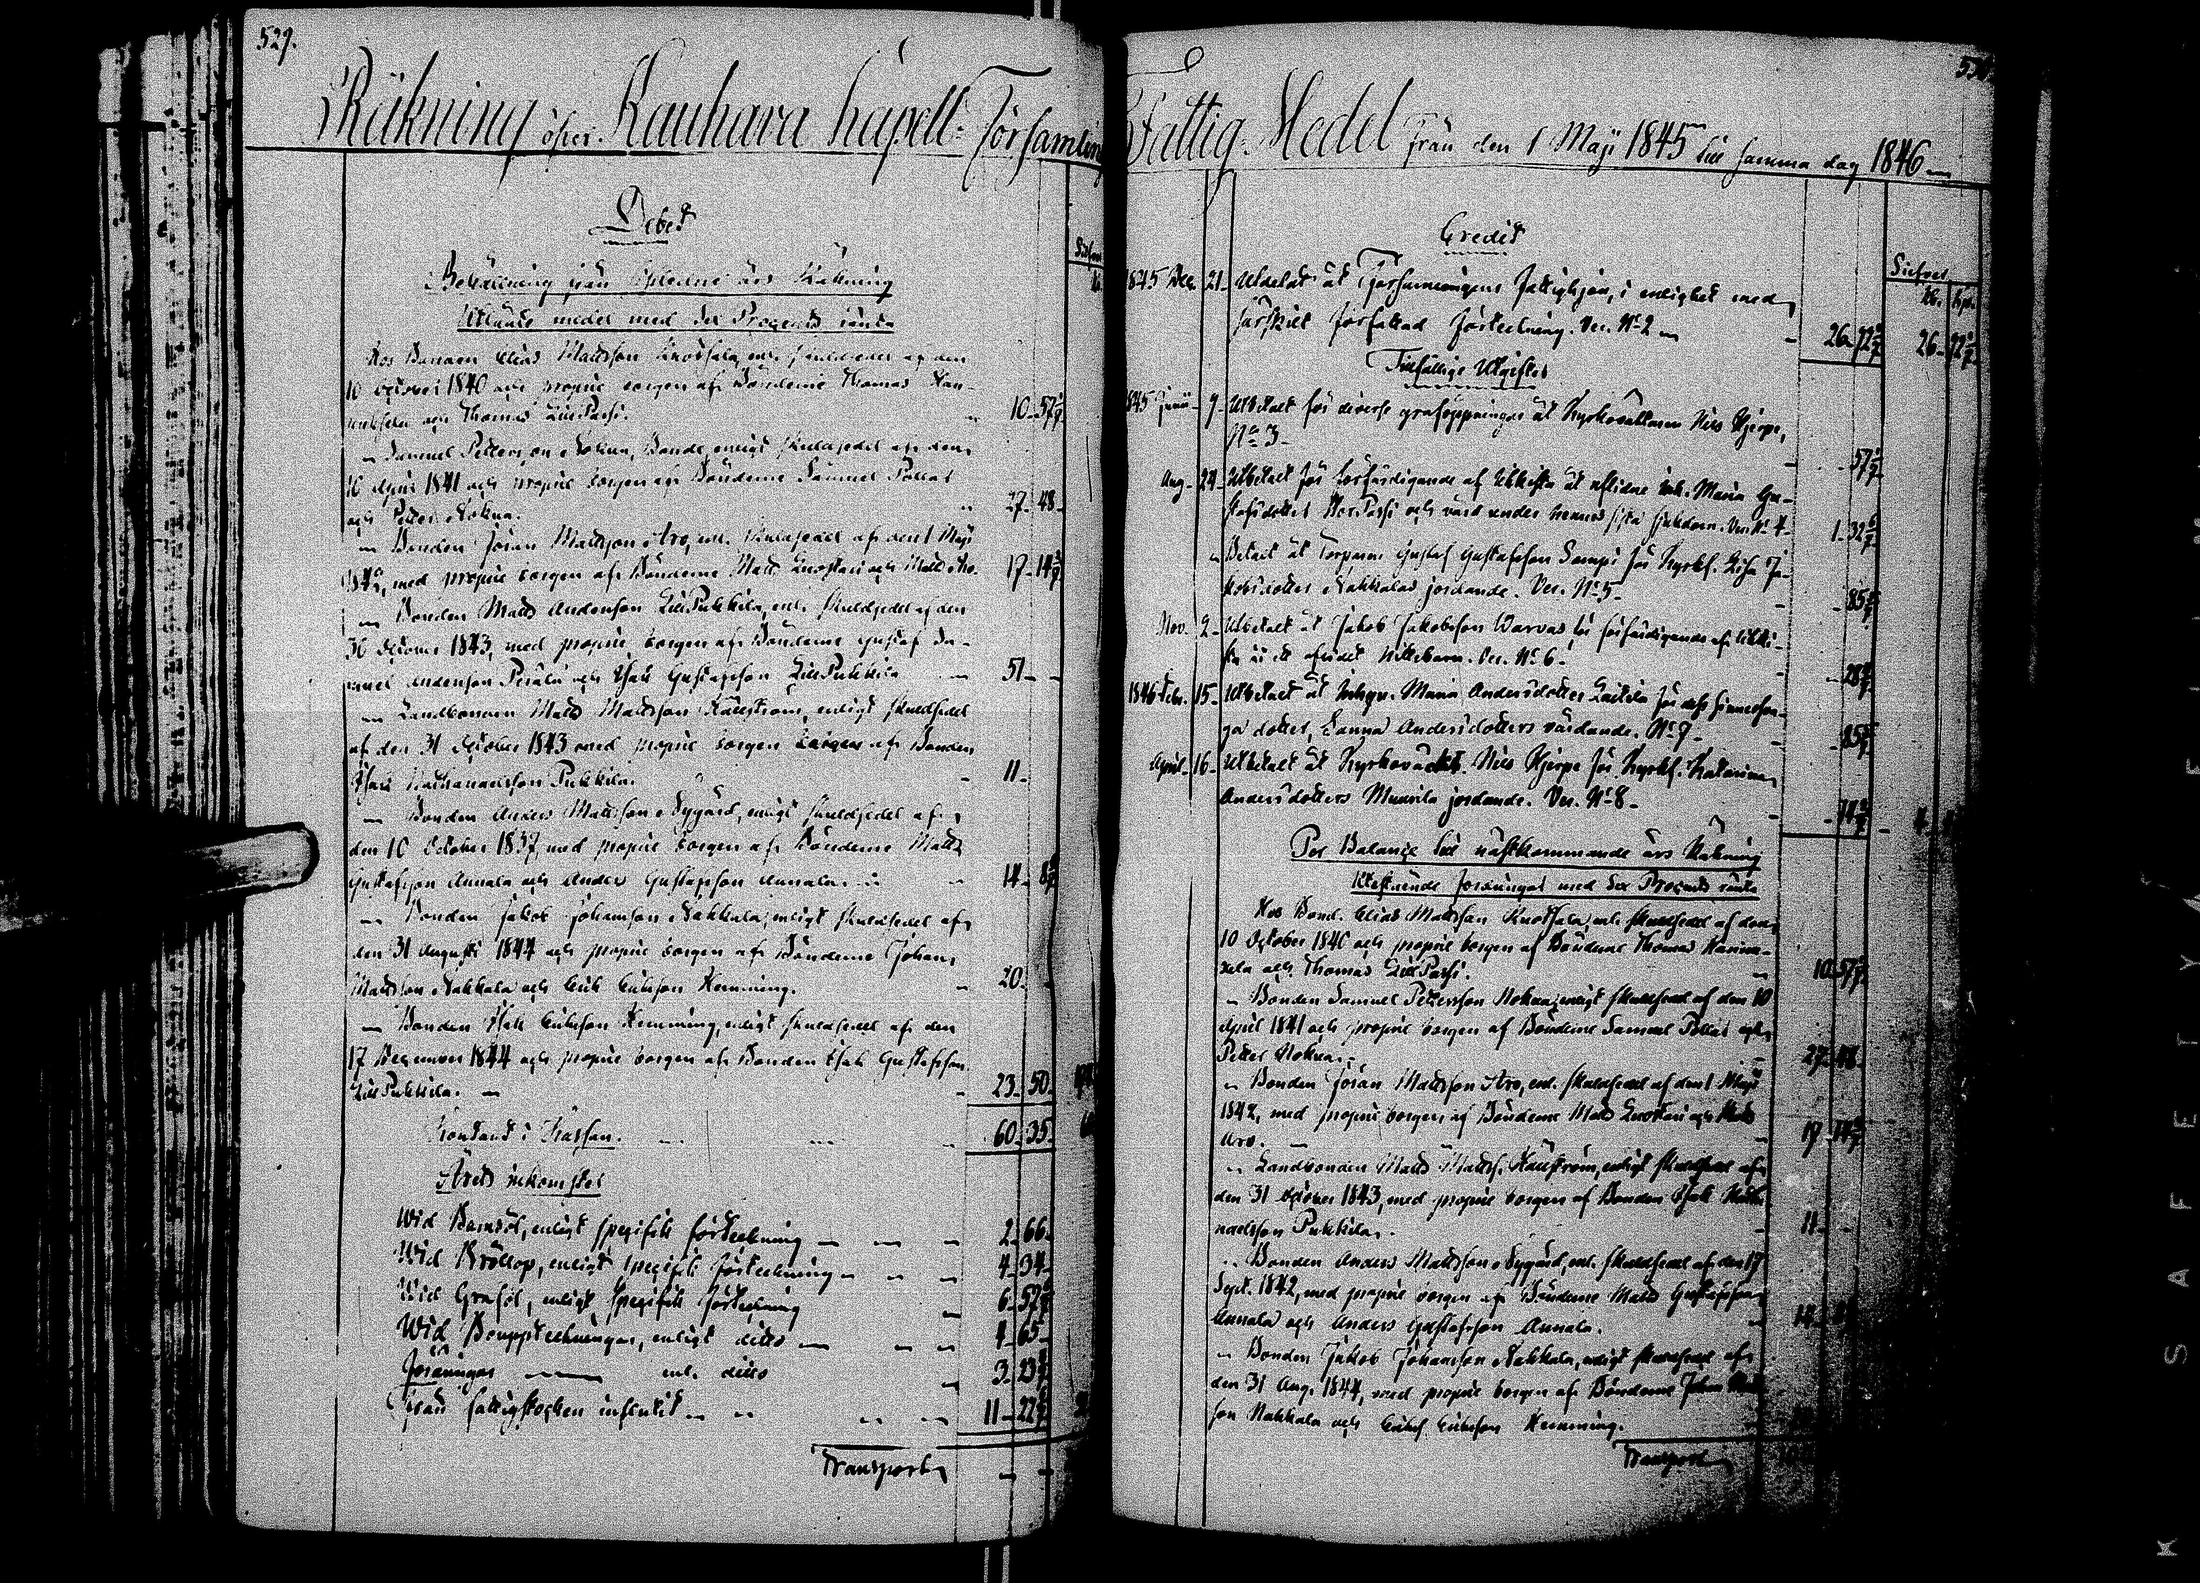 529.
Räkning öfver Kauhava Kapell Församlings
Debet
Behållning från års Räkning
Utlånte medel med Sex Procents ränta
Hos Bonden Elias Mattsson Knossala, enl. skuldsedel af den
10 October 1840 och proprie borgen af Bönderne Thomas Han-
och Thomas LillPassi. 10 57 1/7
Samuel Pettersson Nokua, Bonde, enligt skuldsedel af den
10 April 1841 och proprie borgen af Bönderne Samuel Pollas
och Petter Nokua. 27 48
Bonden Jöran Mattsson Aro, enl. skuldsedel af den 1 Maji
1842, med proprie borgen af Bönderne Matts Luostari och Matts Aro. 17 14
Bonden Matts Andersson LillPukkila, enl. skuldsedel af den
30 October 1843, med proprie borgen af Bönderne Gustaf Sa-
muel Andersson Perälä och Isak Gustafsson LillPukkila 51
Landbonden Matts Mattsson Källström, enligt skuldsedel
af den 31 October 1843 med proprie borgen af Bonden
Isak Nathanaelsson Pukkila. 11
Bonden Anders Mattsson Nygård, enligt skuldsedel af
den 10 October 1837, med proprie borgen af Bönderne Matts
Gustafsson Annala och Anders Gustafsson Annala. 14 8
Bonden Jakob Johansson Nahkala, enligt skuldsedel af
den 31 Augusti 1844 och proprie borgen af Bönderne Johan
Mattsson Nahkala och Erik Eriksson Hemming. 20
Bonden Isak Eriksson Hemming, enligt skuldsedel af den
17 December 1844 och proprie borgen af Bonden Isak Gustafsson
LillPukkila. 23 50
Kontant i Kassan. 60 35
Årets inkomster
Wid Barnsöl, enligt specifik förteckning 2 66
Wid Bröllop, enligt specifik förteckning 4 34
Wid Graföl, enligt specifik förteckning 6 57
Wid enligt ditto 4 65
enl. ditto 3 23
Från fattigstocken influtit 11 22
Transport
Fattig-Medel från den 1 Maji 1845 till samma dag 1846
Credit
Silfver
Rb. Kop.
1845 Dec. 21 Utdelat åt Församlingens fattighjon, i enlighet med
särskilt författad förteckning. Ver. No 2 26 72 26 72
Tillfällige Utgifter
1845 Junii 9 Utbetalt för diverse graföppningar åt Kyrkovaktaren Nils Hjerpe,
No 3 57 1/7
Aug. 24 Utbetalt för förfärdigande af likkista åt aflidne Inh. Maria Gu-
stafsdotter StorPassi och vård under hennes sista sjukdom. Ver. No 4 1 32 6/7
Betalt åt Torparen Gustaf Gustafsson Sampi för Kyrkf. Lisa Ja-
kobsdotter Nahkalas jordande. Ver. No 5 85
Nov. 2 Utbetalt åt Jakob Jakobsson Warvas för förfärdigande af likki-
sta åt ett aflidet hittebarn. Ver. No 6 28
1846 Febr. 15 Utbetalt åt Inhys. Maria Andersdotter Laitila för dess sinnessva-
ga dotter, Sanna Andersdotters vårdande. No 7 85
April 16 Utbetalt åt Kyrkovakt. Nils Hjerpe för Kyrkf. Katarina
Andersdotters jordande. Ver. No 8
Per Balance till nästkommande års Räkning
Utestående fordringar med Sex Procents ränta
Hos Bond. Elias Mattsson Knossala, enl. skuldsedel af den
10 October 1840 och proprie borgen af Bönderne Thomas
och Thomas LillPassi. 10 57
Bonden Samuel Pettersson Nokua, enligt skuldsedel af den 10
April 1841 och proprie borgen af Bönderne Samuel Pollas och
Petter Nokua. 27 48
Bonden Jöran Mattsson Aro, enl. skuldsedel af den 1 Maji
1842, med proprie borgen af Bönderne Matts Luostari och Matts
Aro. 17 14
Landbonden Matts Mattss. Källström, enligt skuldsedel af
den 31 October 1843, med proprie borgen af Bonden Isak Natha-
naelsson Pukkila. 11
Bonden Anders Mattsson Nygård, enl. skuldsedel af den 17
Sept. 1842, med proprie borgen af Bönderne Matts Gustafsson
Annala och Anders Gustafsson Annala. 14
Bonden Jakob Johansson Nahkala, enligt skuldsedel af
den 31 Aug. 1844, med proprie borgen af Bönderne Johan Matts-
son Nahkala och Eriksson Hemming.
Transport
K SAFETY